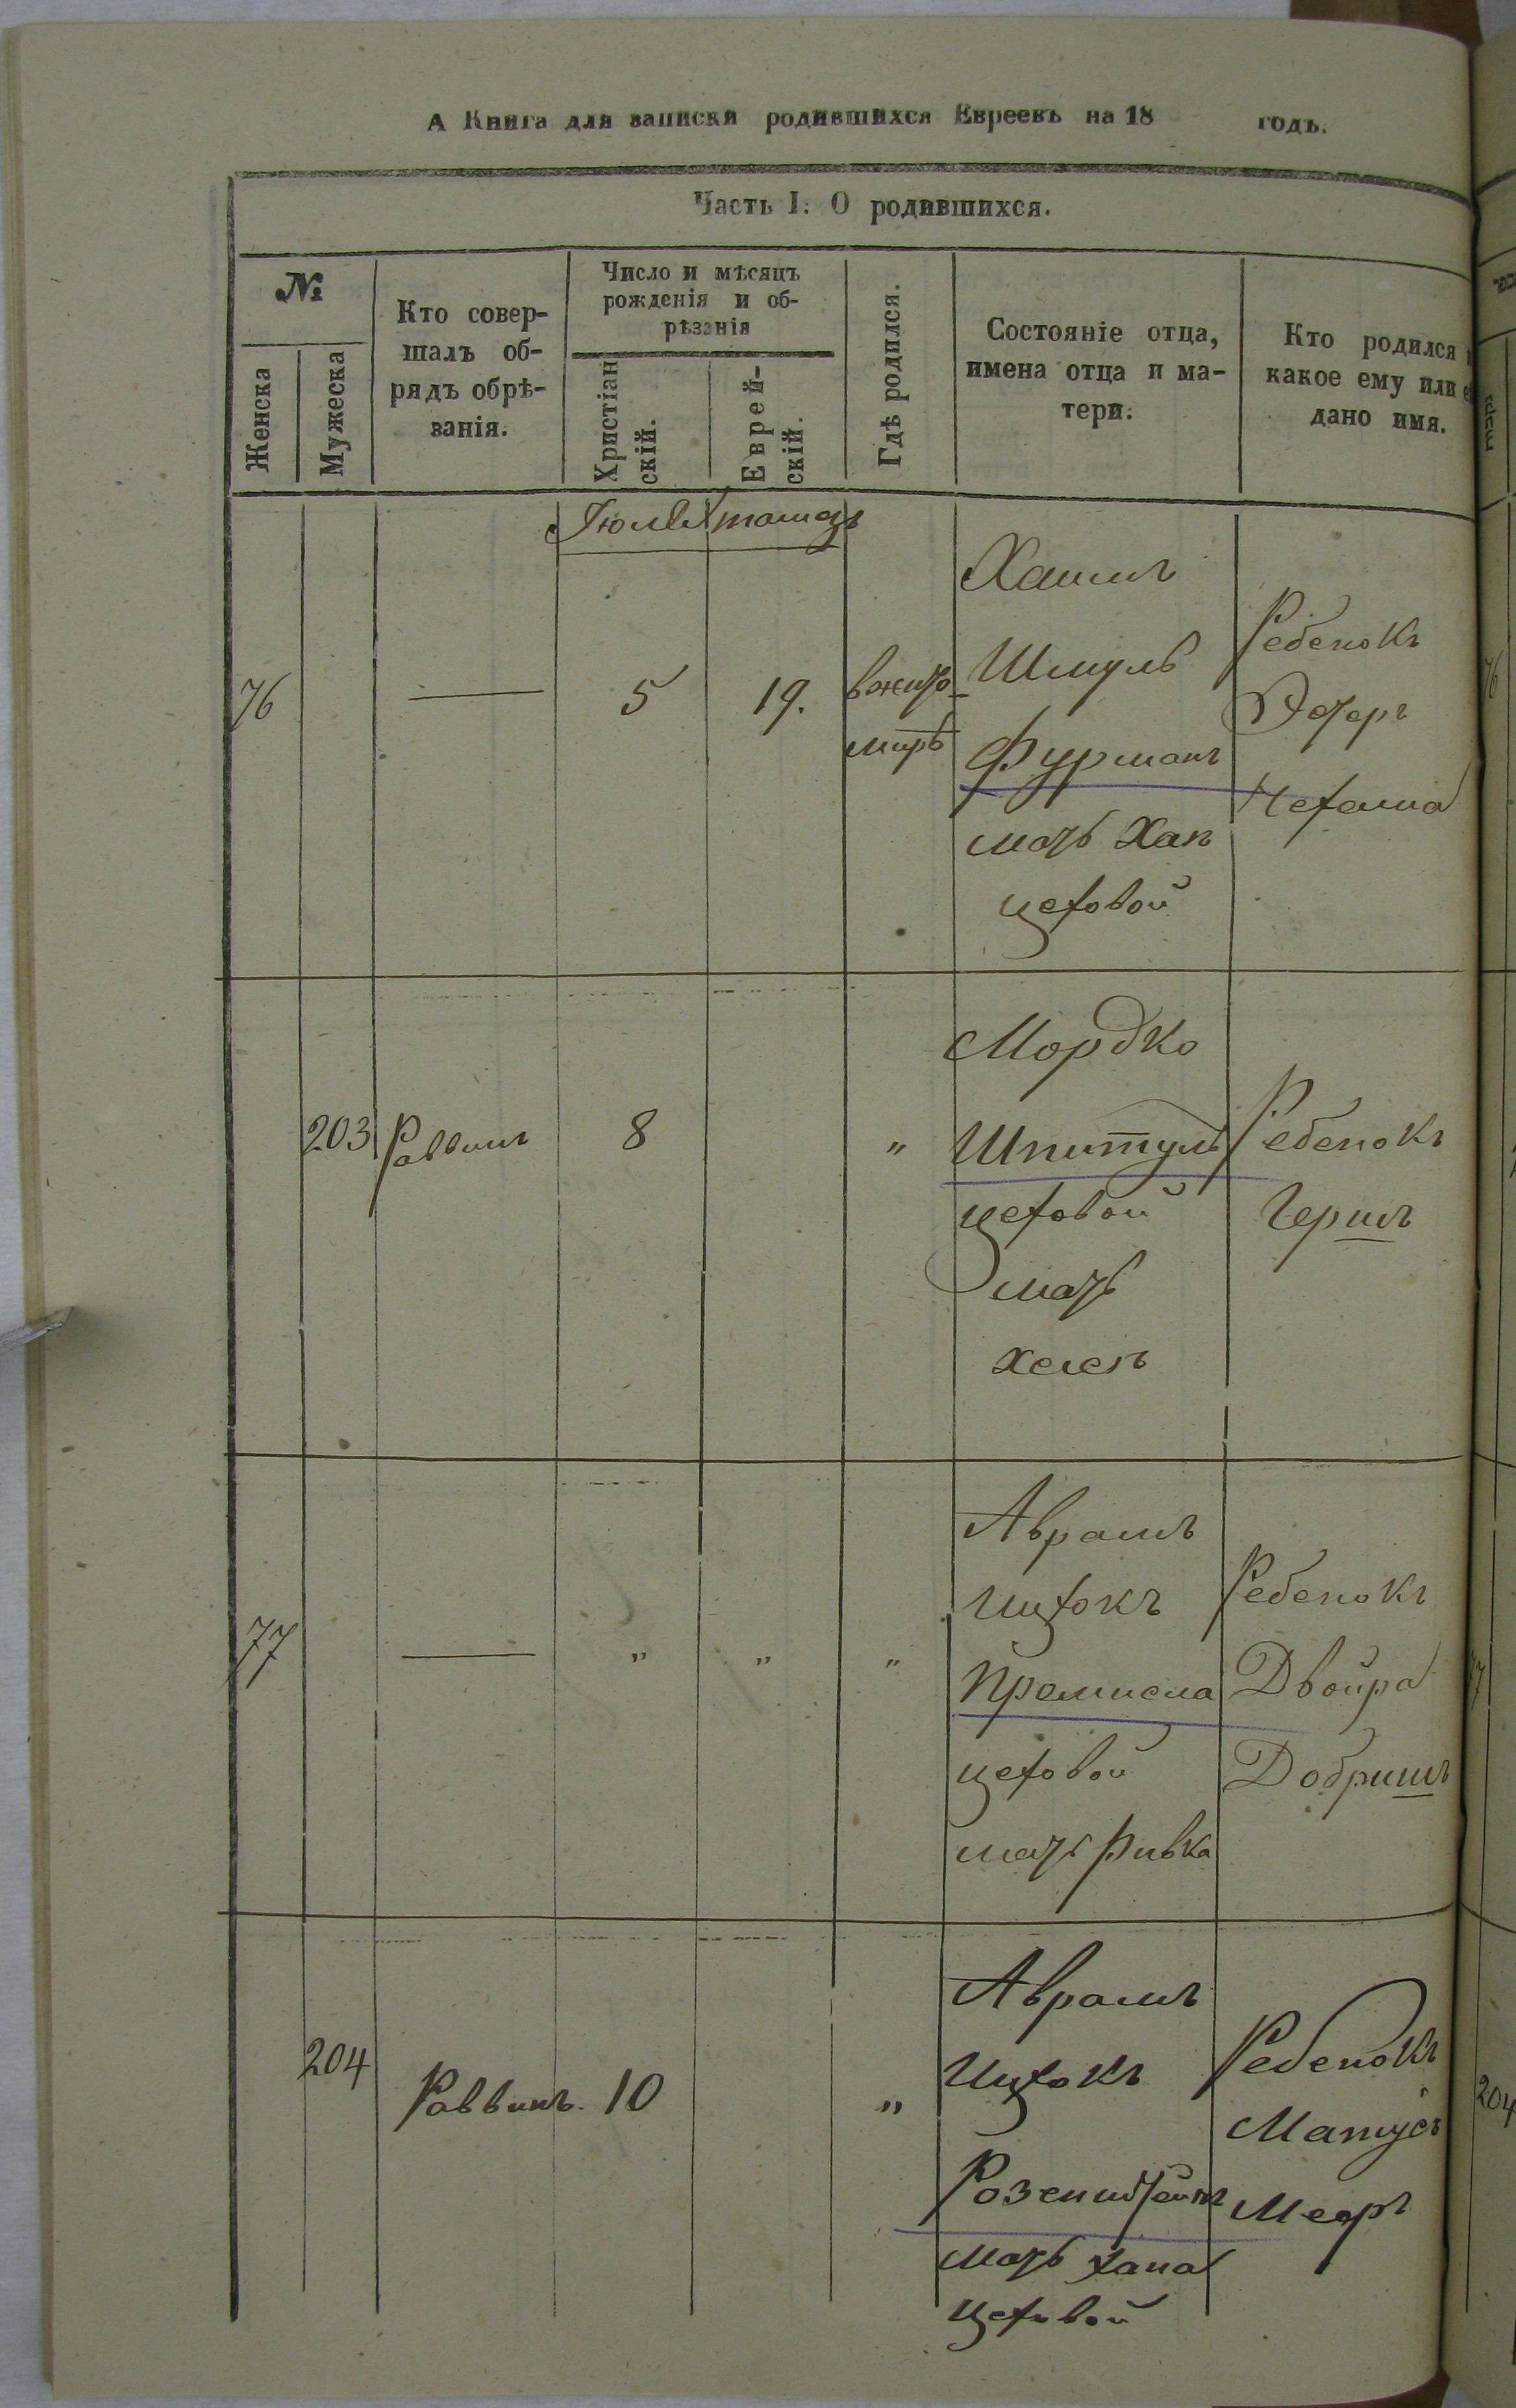 А Книга для записки родившихся Евреевъ на 18 годъ.
Часть I. О родившихся.
№
Женска
Мужеска
Кто совер-
шалъ об-
рядъ обрѣ-
занія.
Число и мѣсяцъ
рожденія и об-
рѣзанія
Христіан
скій.
Еврей-
скій.
Гдѣ родился.
Состояніе отца,
имена отца и ма-
тери.
Кто родился
какое ему или
дано имя.
Іюль
76
5
19.
вжито-
мирѣ
Хаимъ
Шмуль
Фурманъ
мать Хан
цеховой
Ребенокъ
Эстеръ
Нехама
203
Раввинъ
8
"
Мордко
Шпитуль
цеховой
мать
Ребенокъ
Гершъ
77
"
"
"
Аврамъ
Ицхокъ
цеховой
мать Ривка
Ребенокъ
Двойра
Добришъ
204
Раввинъ.
10
"
Аврамъ
Ицхокъ
Розенштейнъ
мать хана
цеховой
Ребенокъ
Матусъ
Мееръ
76
77
204